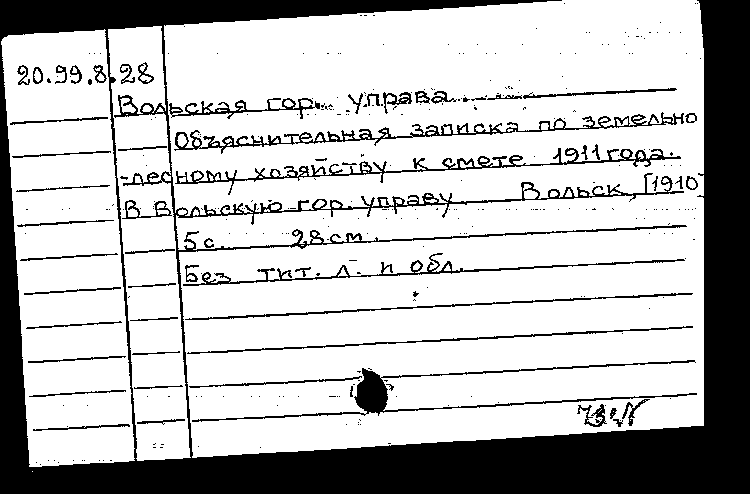 20.99.8.28
Вольская гор. управа
Объяснительная записка по земельно
-лесному хозяйству к смете 1911 года.
В Вольскую гор. управу Вольск, [1910
5 с. 28 см.
Без тит. л. и обл.